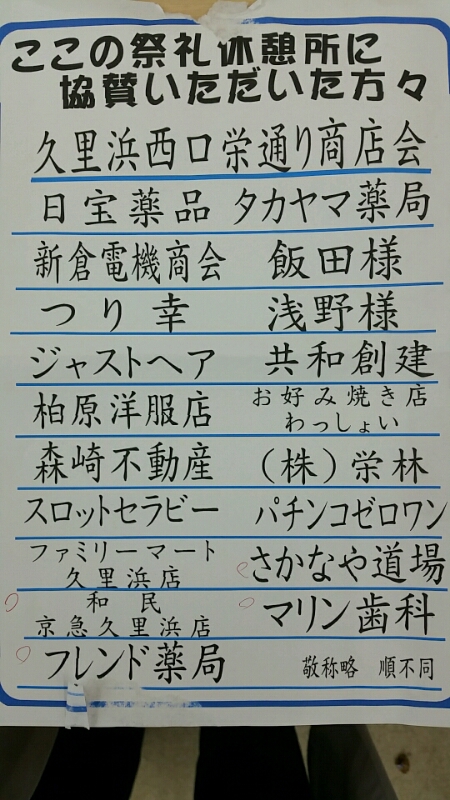 ここの祭礼休憩所に
協賛いただいた方々
久里浜西口栄通り商店会
日宝薬品 タカヤマ薬局
新倉電機商会 飯田様
つり幸 浅野様
ジャストヘア 共和創建
柏原洋服店 お好み焼き店
わっしょい
森崎不動産 (株)栄林
スロットセラビー パチンコゼロワン
ファミリーマート
久里浜店 さかなや道場
和民
京急久里浜店 マリン歯科
フレンド薬局 敬称略 順不同